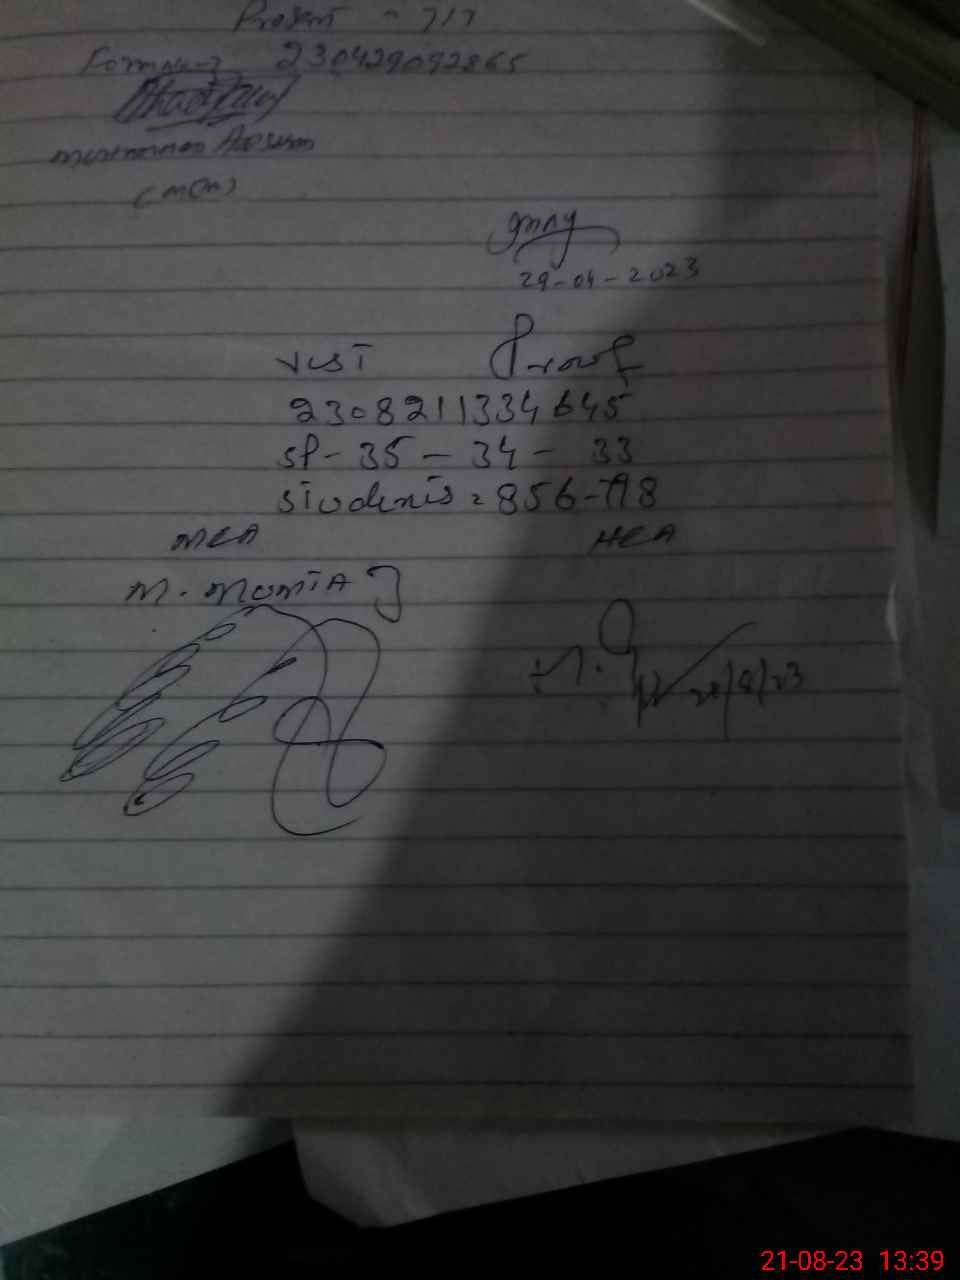 Present - 717
Form No-> 230429092865
Muhammad Akram
(MCM)
29-04-2023
Visit Proof
2308211334645
SP-35-34-33
Students = 856-798
MEA HEA
M. MUMTAZ
21/8/23
21-08-23 13:39